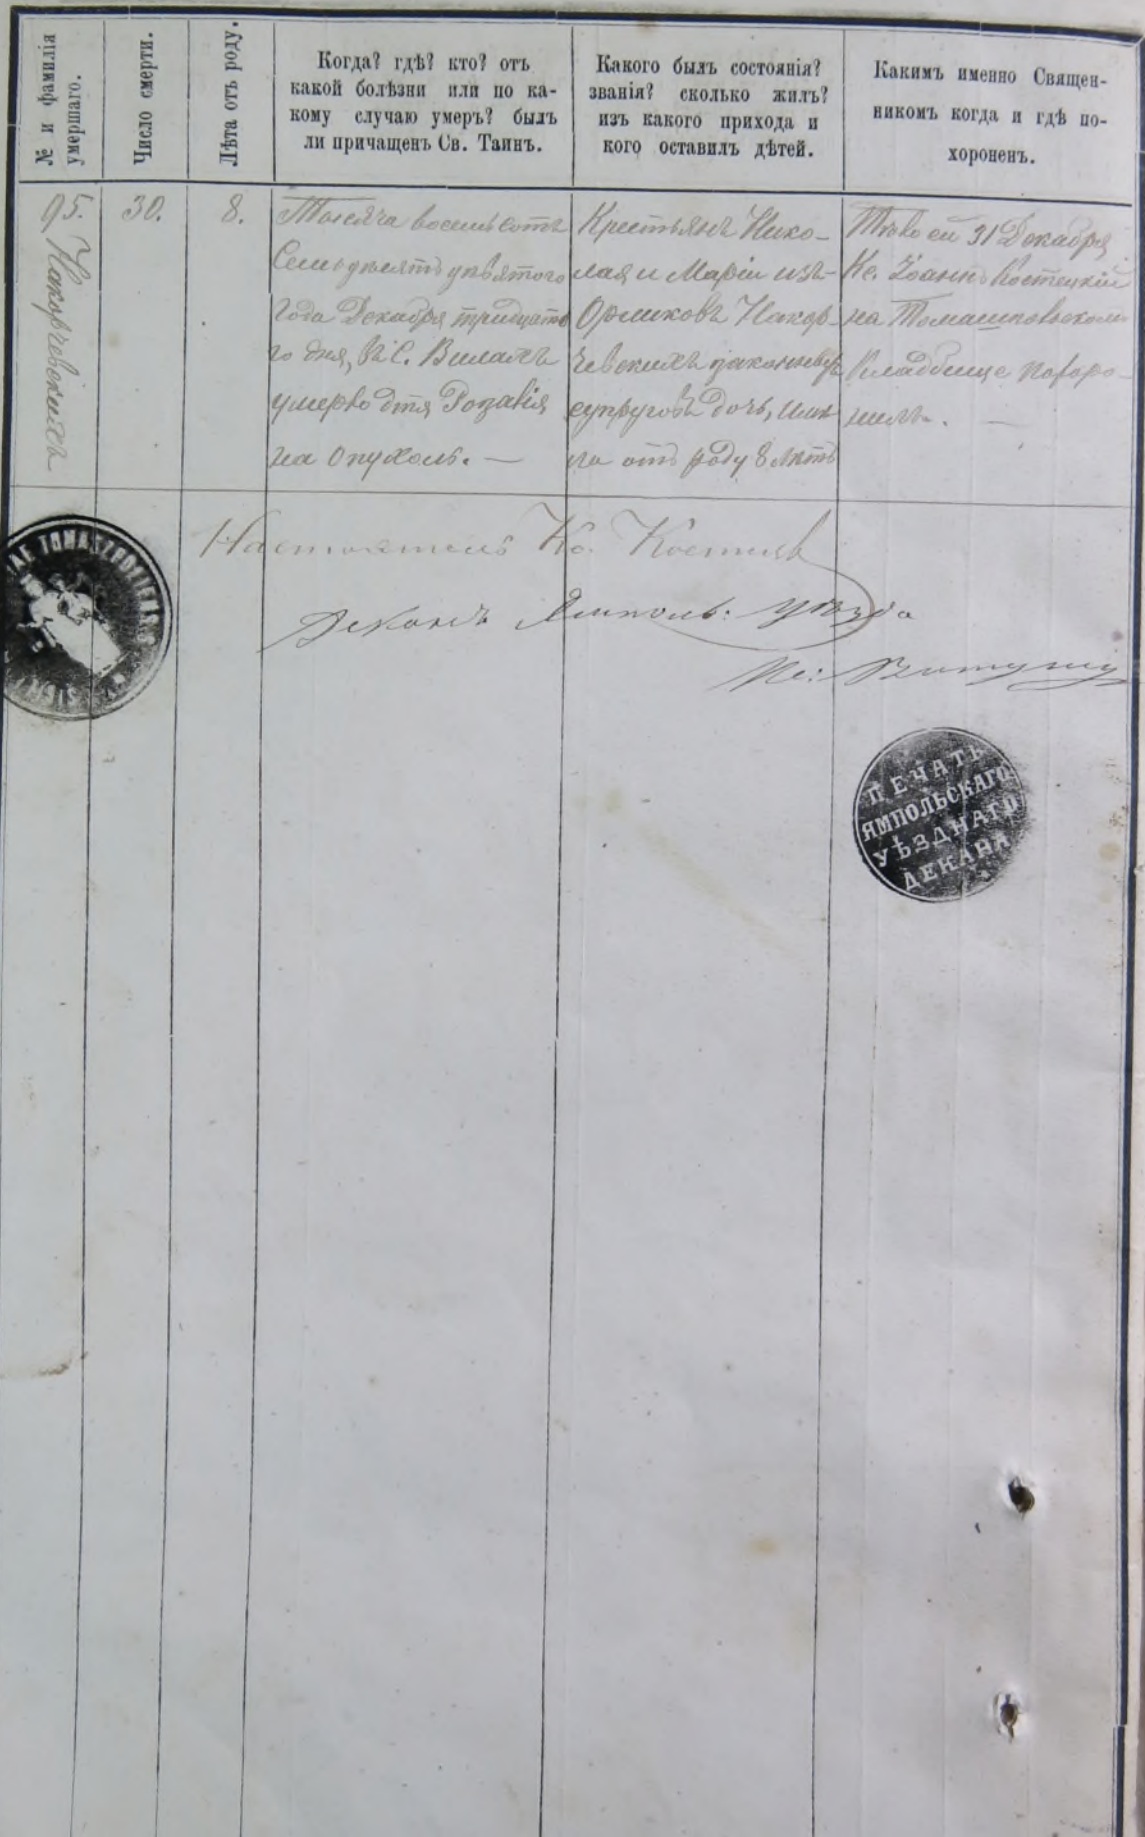 № и фамилія
умершаго.
Число смерти.
Лѣта отъ роду.
Когда? гдѣ? кто? отъ
какой болѣзни или по ка-
кому случаю умеръ? былъ
ли причащенъ Св. Таинъ.
Какого былъ состоянія?
званія? сколько жилъ?
изъ какого прихода и
кого оставилъ дѣтей.
Какимъ именно Священ-
никомъ когда и гдѣ по-
хороненъ.
95.
Накорчевскихъ
30.
8.
Тысяча восемьсотъ
Семьдесятъ
года Декабря тридцато
го дня, въ С. Вилахъ
умерло дитя Розалія
на опухоль. —
Крестьянъ Нико-
лая и Маріи изъ
Накор-
чевскихъ законныхъ
супруговъ дочь, имѣ
ла отъ роду 8 лѣтъ
Тѣло ей 31 Декабря
Кс. Іоаннъ Костецкій
на Томашпольскомъ
Кладбище похоро-
нилъ. —
Настоятель Кс.
Деканъ Ямполь: уѣзда
Кс:
AE TOMASZPOLIENS
SIGILL
ПЕЧАТЬ
ЯМПОЛЬСКАГО
УѢЗДНАГО
ДЕКАНА